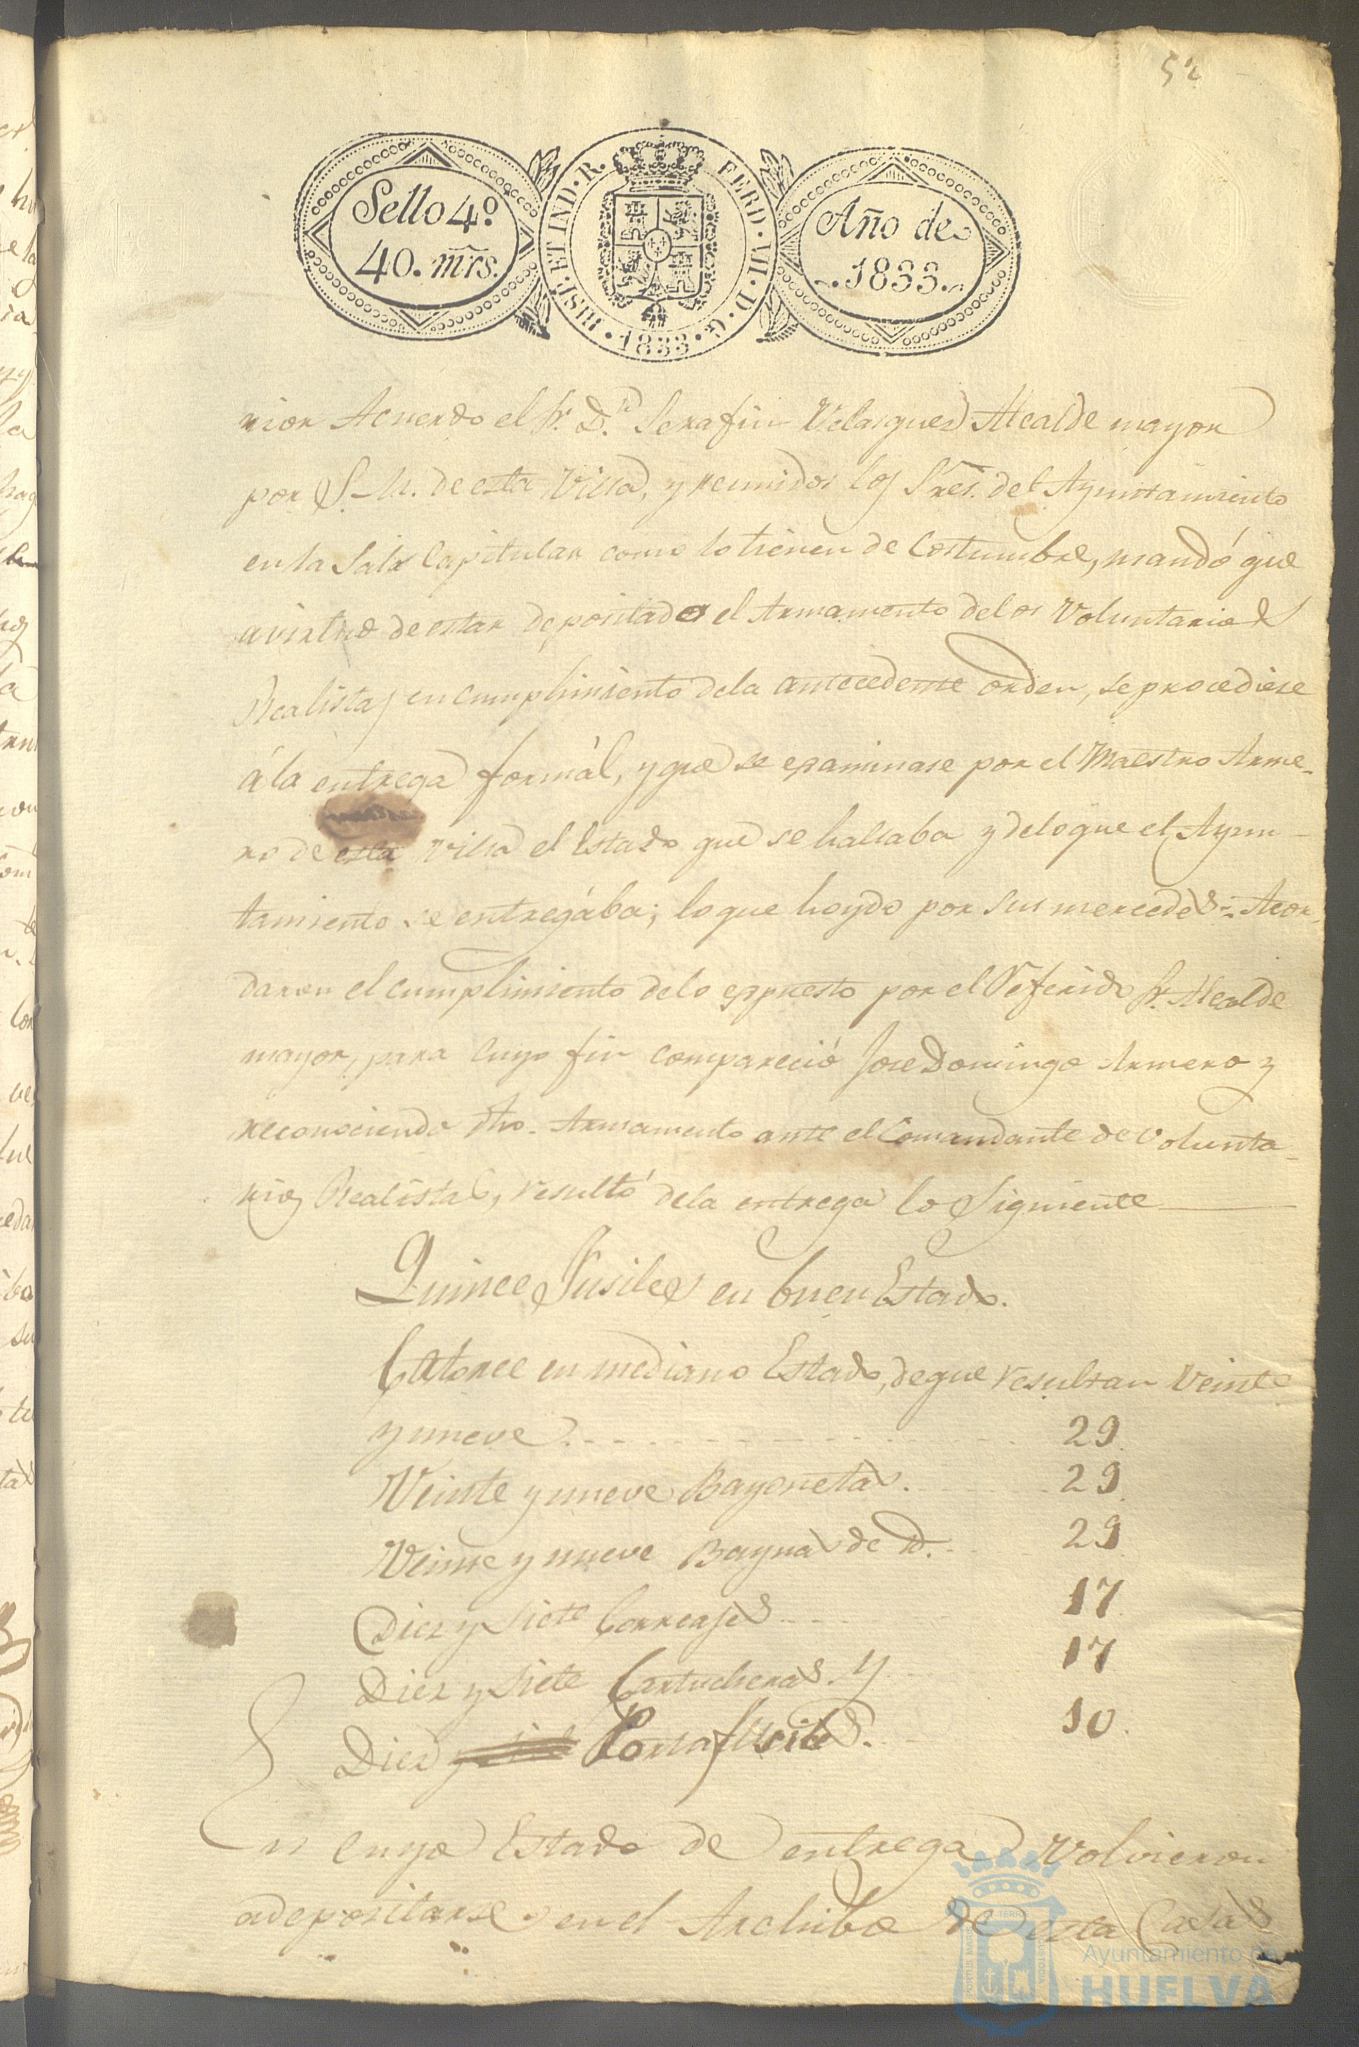 52
Sello 4º
40. mrs.
HISP. ET IND. R. FERD. VII. D. G. 1833
Año de
1833.
rior Acuerdo el Sr. Dn. Serafin Velasques Alcalde mayor
por S. M. de esta Villa, y reunidos los Sres. del Ayuntamiento
en la Sala Capitular como lo tienen de Costumbre, mandó que
a virtud de estar depositado el Armamento de los Voluntarios
Realistas en cumplimiento de la antecedente orden, se procediese
á la entrega formál, y que se epaminase por el Maestro Arme-
ro de esta Villa el Estado que se hallaba y delo que el Ayun-
tamiento se entregába; lo que hoydo por sus mercedes: Acor-
daron el cumplimiento delo eppuesto por el Referido Sr. Alcalde
mayor, para cuyo fin compareció Jose Domingo Armero y
reconociendo dho. Armamento ante el Comandante de Volunta-
rios Realistas, resultó dela entrega lo Siguiente
Quince Fusiles en buen Estado.
Catorce en mediano Estado, de que resultan Veinte
y nueve. 29.
Veinte y nueve Bayonetas. 29.
Veinte y nueve Baynas de Yd. 29.
Diez y Siete Correajes 17
Diez y Siete Cartucheras. y 17
Diez Porta fusiles. 10.
En cuyo Estado de entrega Volvieron
a depositarse en el Archibo de esta Casas
Ayuntamiento de
HUELVA